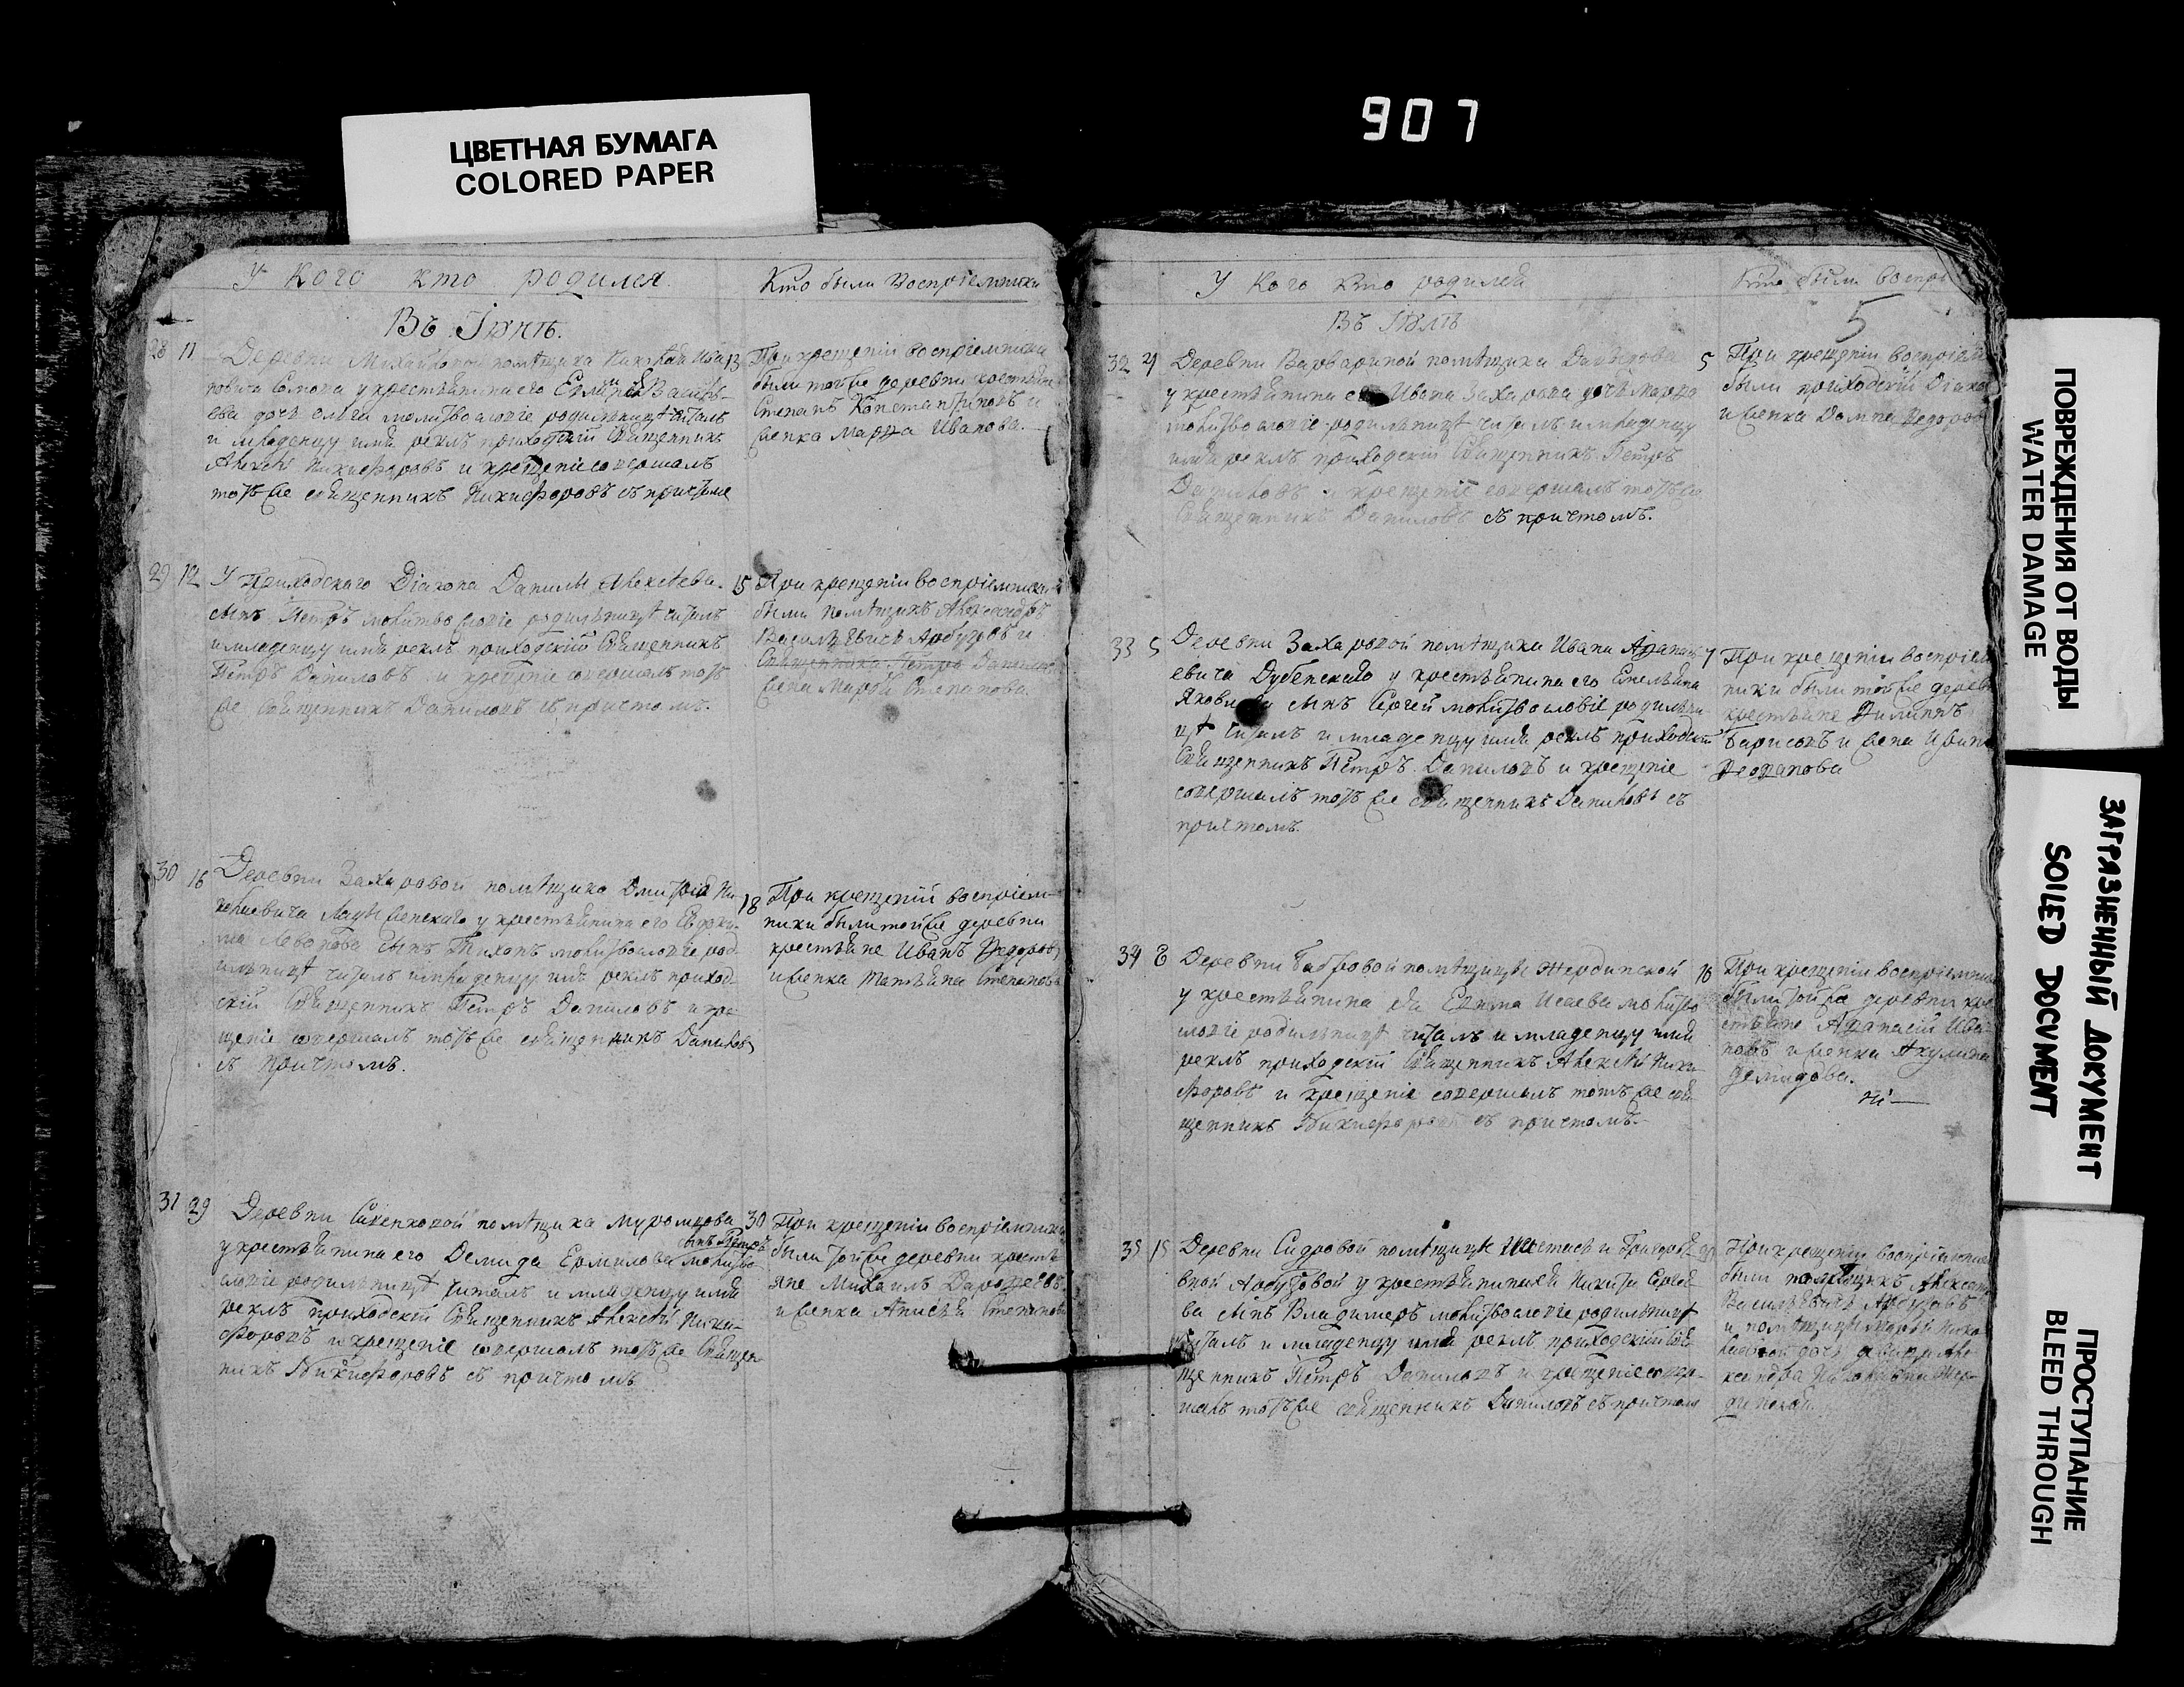 907
ЦВЕТНАЯ БУМАГА
COLORED PAPER
У кого кто родился
Кто были Воспріемники
Въ Іюнѣ.
28 11 Деревни помѣщика
у крестьянина его
дочь молитвословіе родильницѣ читалъ
и младенцу имя рекъ приходскій Священникъ
Алексѣй Никифоровъ и крещеніе совершалъ
тотъ же священникъ Никифоровъ съ причтомъ
13 При крещеніи воспріемники
были той же деревни крестьяне
Степанъ Константиновъ и
женка Марфа Иванова.
29 12 У Приходскаго Діакона Данилы Алексѣева
сынъ Петръ молитвословіе родильницѣ читалъ
и младенцу имя рекъ приходскій Священникъ
Петръ Даниловъ и крещеніе совершалъ тотъ
же Священникъ Даниловъ съ причтомъ.
15 При крещеніи воспріемники
были помѣщикъ Александръ
Васильевичь Арбузовъ и
Священника Петра Данилова
жена Марфа Степанова
30 16 Деревни Захаровой помѣщика Дмитрія
у крестьянина его
сынъ Тихонъ молитвословіе род-
ильницѣ читалъ и младенцу имя рекъ приход-
скій Священникъ Петръ Даниловъ и кре-
щеніе совершалъ тотъ же священникъ Даниловъ
съ причтомъ.
18 При крещеніи воспріем-
ники были той же деревни
крестьяне Иванъ Федоровъ
и женка Татьяна Степанова
31 29 Деревни помѣщика Муромцова
сынъ Петръ
у крестьянина его Демида Ермилова молитво
словіе родильницѣ читалъ и младенцу имя
рекъ приходскій Священникъ Алексѣй Ники-
форовъ и крещеніе совершалъ тотъ же Священ-
никъ Никифоровъ съ причтомъ
30 При крещеніи воспріемники
были той же деревни кресть
яне Михаилъ Дарофеевъ
и женка Анисья Степанова
У кого кто родился
Кто были воспрі
Въ Іюлѣ
5
32 4 Деревни Варвариной помѣщика Давыдова
у крестьянина его Ивана Захарова дочь Марфа
молитвословіе родильницѣ читалъ и младенцу
имя рекъ приходскій Священникъ Петръ
Даниловъ и крещеніе совершалъ тотъ же
Священникъ Даниловъ съ причтомъ.
5 При крещеніи воспріем
были приходскій Діакон
и женка Домна Федоров
33 5 Деревни Захаровой помѣщика Ивана Афанась
евича Дубенскаго у крестьянина его Емельяна
Яковлева сынъ Сергей молитвословіе родильни-
цѣ читалъ и младенцу имя рекъ приходскій
Священникъ Петръ Даниловъ и крещеніе
совершалъ тотъ же священникъ Даниловъ съ
причтомъ.
7 При крещеніи воспріем
ники были той же дерев
крестьяне Филиппъ
Барисовъ и жена Ирина
Феофанова
34 8 Деревни Бабровой помѣщицы Жердинской
у крестьянина ея Ефима Исаева молитво
словіе родильницѣ читалъ и младенцу имя
рекъ приходскій Священникъ Алексѣй Ники-
форовъ и крещеніе совершалъ тотъ же свя
щенникъ Никифоровъ съ причтомъ.
10 При крещеніи воспріемни
были той же деревни кре
стьяне Афанасій Ива-
новъ и женка Акулина
Демидова.
35 15 Деревни Сидровой помѣщицы
Арбузовой у крестьянина ея Никиты Сергѣе
ва сынъ Владимеръ молитвословіе родильницѣ
читалъ и младенцу имя рекъ приходскій Свя
щенникъ Петръ Даниловъ и крещеніе совер-
шалъ тотъ же священникъ Даниловъ съ причтомъ
При крещеніи воспріемники
были помѣщикъ Александръ
Васильевичь Арбузовъ
и помѣщицы Марьи Нико
лаевной дочь девица Але-
ксандра Жер-
динская.
ПОВРЕЖДЕНИЯ ОТ ВОДЫ
WATER DAMAGE
ЗАГРЯЗНЕННЫЙ ДОКУМЕНТ
SOILED DOCUMENT
ПРОСТУПАНИЕ
BLEED THROUGH